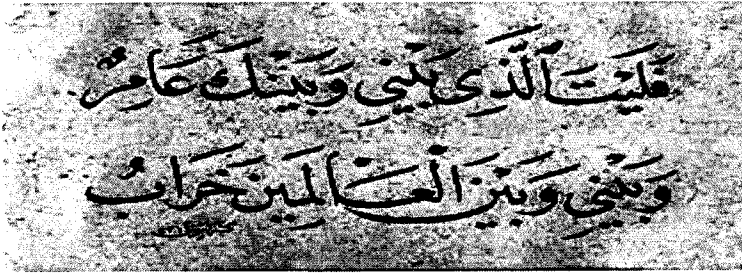 فَلَيْتَ ٱلَّذِى بَيْنِي وَبَيْنَكَ عَامِرٌ
وَبَيْنِي وَبَيْنَ الْعَالَمِينَ خَرَابٌ